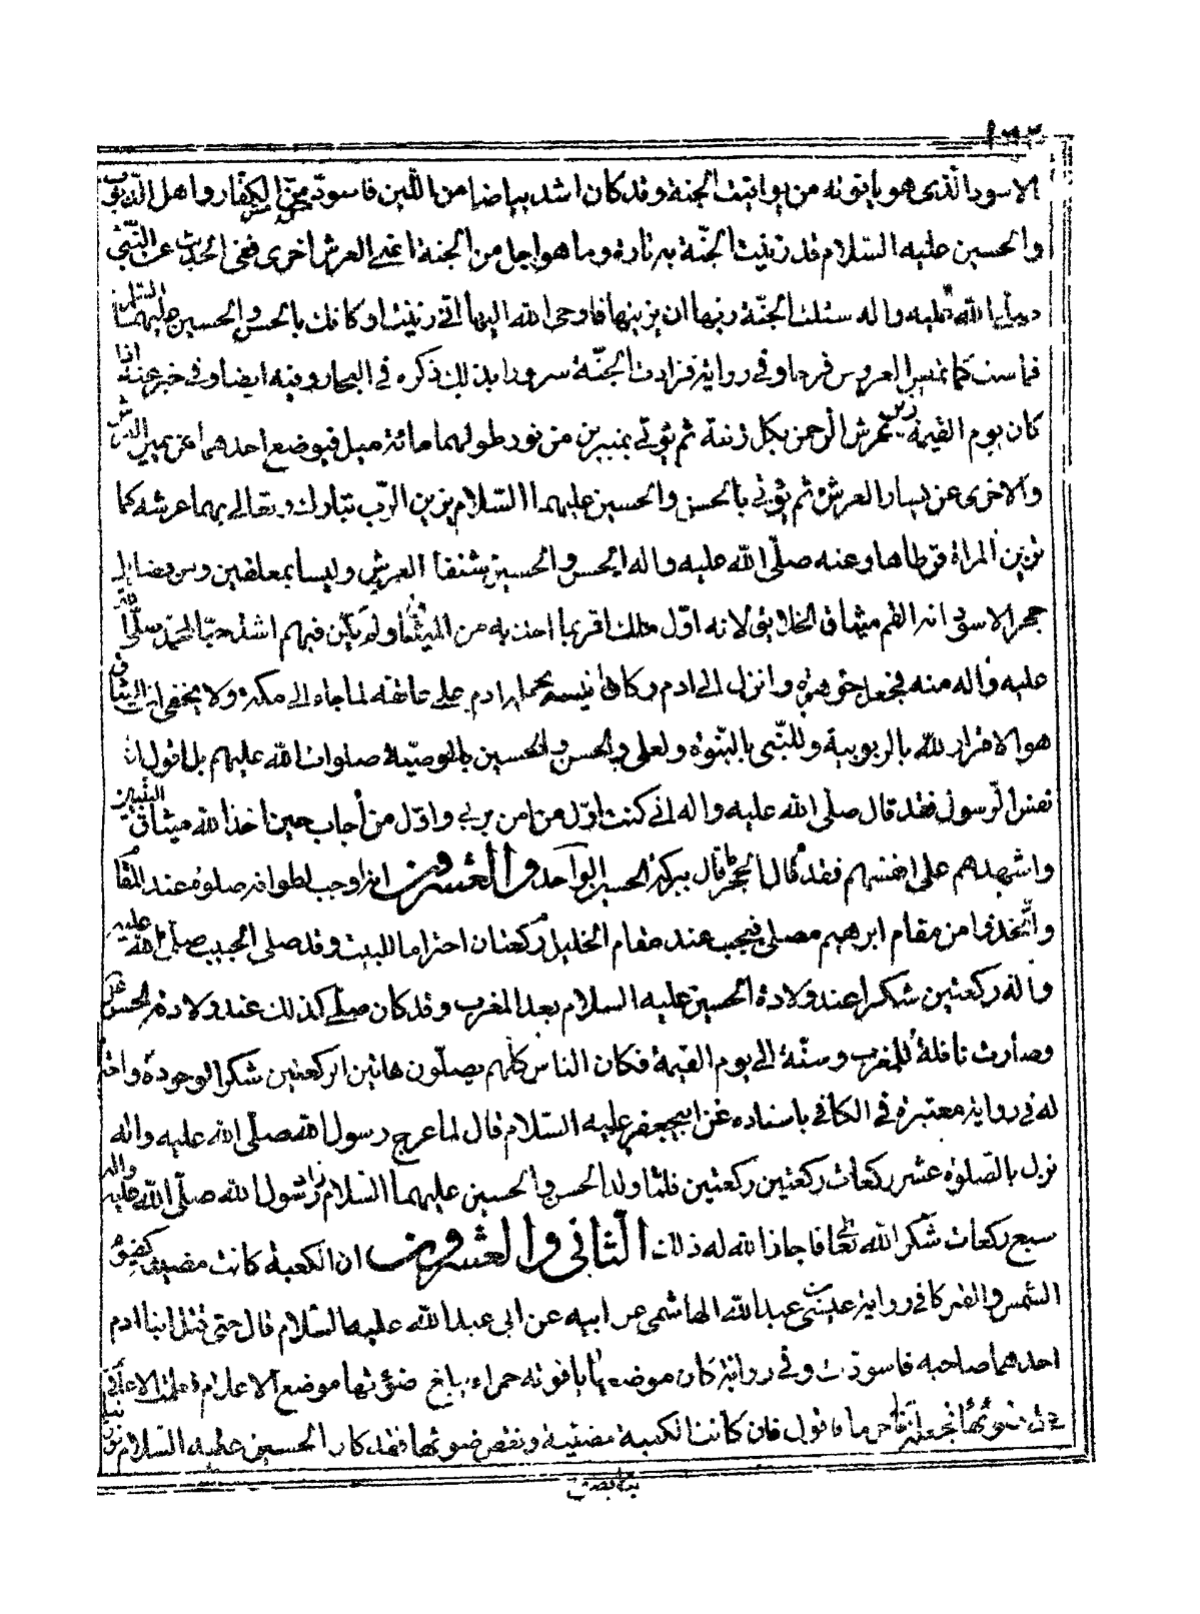 الاسود الذى هو ياقوتة من يواقيت الجنة وقد كان اشد بياضا من اللبن فاسود من الكفار واهل الذنوب
والحسين عليه السلام قد زينت الجنّة به تارة وما هو اجل من الجنة اعنى العرش اخرى ففى الحديث عن النبّى
صلى الله عليه واله سئلت الجنّة ربها ان يزينها فاوحى الله اليها انى زينت اركانك بالحسن والحسين عليهما السلام
فماست كما تميس العروس فرحا وفى رواية فزادت الجنّة سرورا بذلك ذكره فى البحار وفيه ايضا وفى خبر عنه اذا
كان يوم القيمة زين عرش الرحمن بكل زينة ثم يؤتى بمنبرين من نور طولهما مائة ميل فيوضع احدهما عن يمين العرش
والاخرى عن يسار العرش ثم يؤتى بالحسن والحسين عليهما السلام يزين الرّب تبارك وتعالى بهما عرشه كما
تزين المراة قرطاها وعنه صلّى الله عليه واله الحسن والحسين شنفا العرش وليسا بمعلقين ومن فضايل
حجر الاسود انه القم ميثاق الخلايق لانه اوّل ملك اقر بما اخذ به من الميثاق ولم يكن فيهم اشد حبّا لمحمّد صلّى الله
عليه واله منه فجعل جوهرة وانزل الى ادم وكان يحمله ادم على عاتقه لما جاء الى مكة ولا يخفى ان الميثاق
هو الاقرار لله بالربوبية وللنّبى بالنبّوة ولعلى والحسن والحسين بالوصيّة صلوات الله عليهم بل اقول ان
نفس الرّسول فقد قال صلى الله عليه واله انى كنت اوّل من امن بربى واوّل من أجاب حين اخذ الله ميثاق النبيين
واشهدهم على انفسهم فقد قال ببركة الحسين الواحد والعشرون انه اوجب لطوافه صلوة عند المقام
واتّخذوا من مقام ابرهيم مصلى فيجب عند مقام الخليل ركعتان احتراما للبيت وقد صلى الحبيب صلّى الله عليه
واله ركعتين شكرا عند ولادة الحسين عليه السلام بعد المغرب وقد كان صلى كذلك عند ولادة الحسن
وصارت نافلة للمغرب وسنّة الى يوم القيمة فكان الناس كلّهم يصلّون هاتين الركعتين شكرا لوجوده
له فى رواية معتبرة فى الكافى باسناده عن ابيجعفر عليه السّلام قال لما عرج رسول الله صلّى الله عليه واله
نزل بالصّلوة عشر ركعات ركعتين ركعتين فلمّا ولد الحسن والحسين عليهما السلام زاد رسول الله صلّى الله عليه واله
سبع ركعات شكر الله تعالى فاجاز الله له ذلك الثانى والعشرون ان الكعبة كانت مضيئة كضوء
الشمس والقمر كما فى رواية عيسى عبد الله الهاشمى عن ابيه عن ابى عبد الله عليه السّلام قال حتى قتل ابنا ادم
احدهما صاحبه فاسودّت وفى رواية كان موضعها ياقوتة حمراء يبلغ ضوئها موضع الاعلام
ضوئها فجعله اقول فان كانت الكعبة مضيئة ونقص ضوئها فقد كان الحسين عليه السّلام